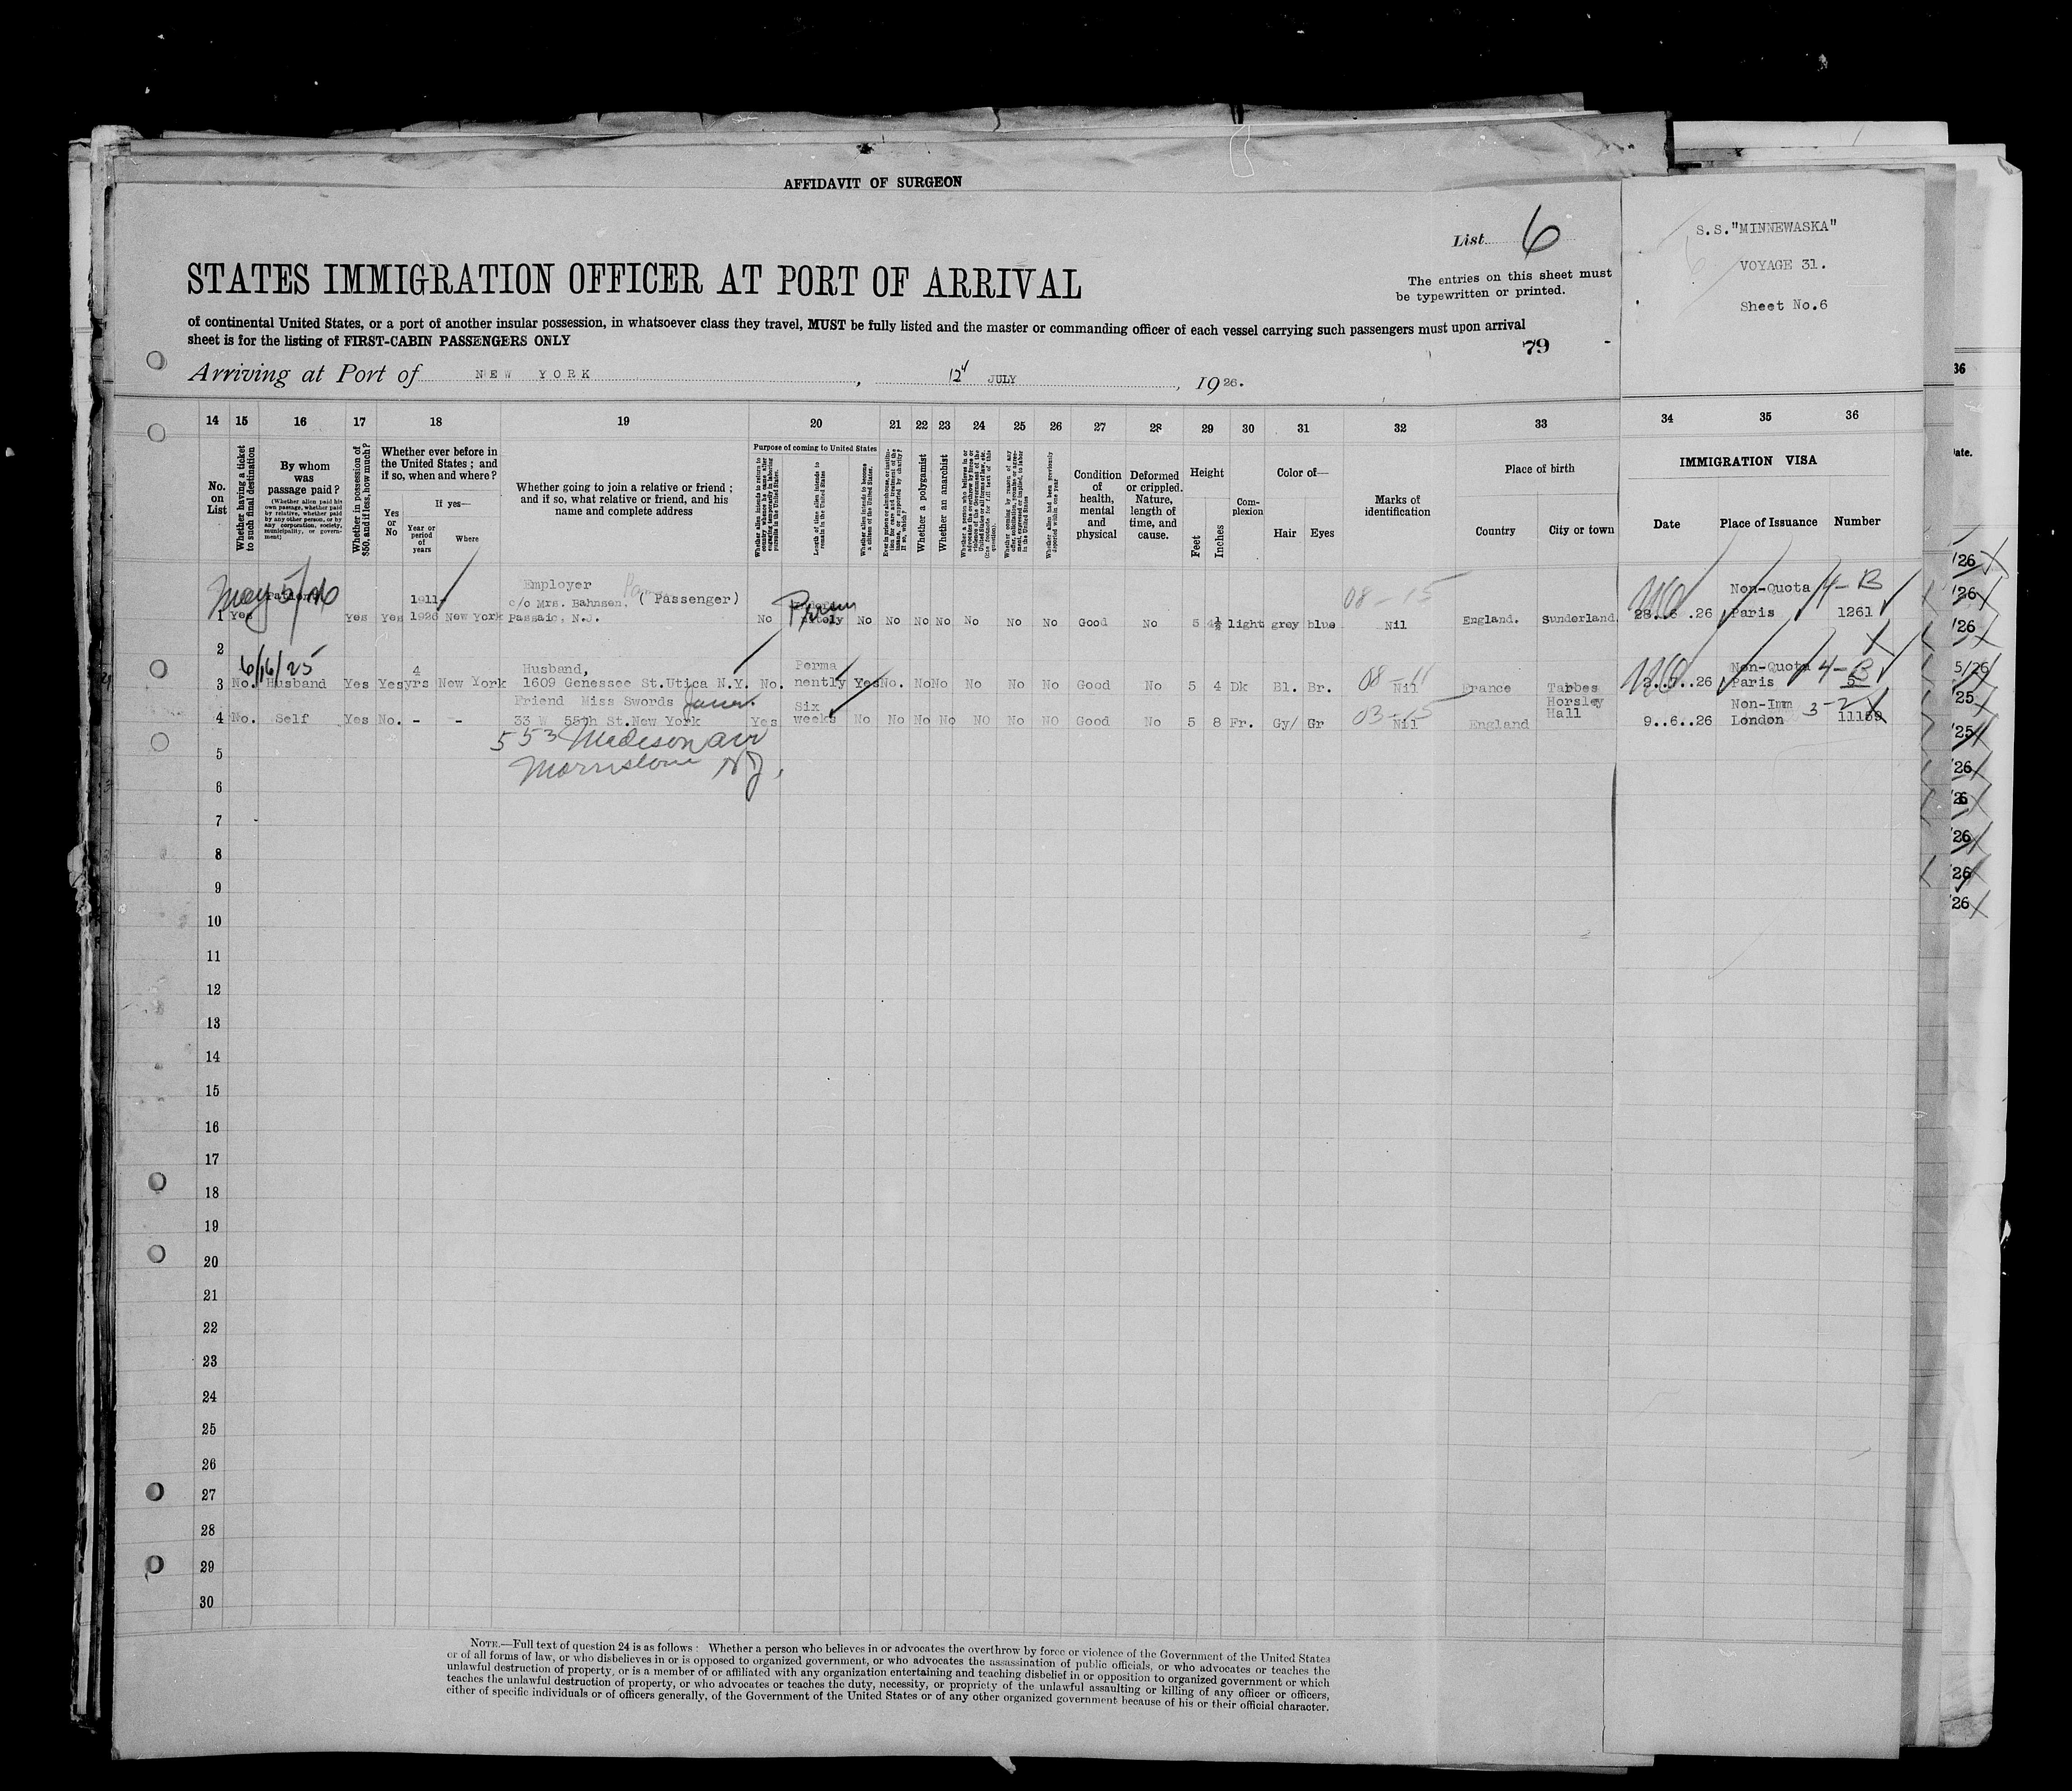 AFFIDAVIT OF SURGEON
List 6
STATES IMMIGRATION OFFICER AT PORT OF ARRIVAL
The entries on this sheet must
be typewritten or printed.
of continental United States, or a port of another insular possession, in whatsoever class they travel, MUST be fully listed and the master or commanding officer of each vessel carrying such passengers must upon arrival
sheet is for the listing of FIRST-CABIN PASSENGERS ONLY
79
Arriving at Port of NEW YORK, 12 JULY, 1926.
S.S."MINNEWASKA"
VOYAGE 31.
Sheet No.6
36
14 15 16 17 18 19 20 21 22 23 24 25 26 27 28 29 30 31 32 33 34 35 36
No. on List
Whether having a ticket to such final destination
By whom was passage paid?
(Whether alien paid his own passage, whether paid by relative, whether paid by any other person, or by any corporation, society, municipality, or government)
Whether in possession of $50, and if less, how much?
Whether ever before in the United States; and if so, when and where?
Yes or No
If yes—
Year or period of years
Where
Whether going to join a relative or friend; and if so, what relative or friend, and his name and complete address
Purpose of coming to United States
Length of time alien intends to remain in the United States
Whether alien intends to become a citizen of the United States.
Whether a polygamist
Whether an anarchist
Whether alien had been previously deported within one year
Condition of health, mental and physical
Deformed or crippled. Nature, length of time, and cause.
Height
Feet
Inches
Complexion
Color of—
Hair
Eyes
Marks of identification
Place of birth
Country
City or town
IMMIGRATION VISA
Date
Place of Issuance
Number
May 5/26
Employer
1911-
c/o Mrs. Bahnsen, (Passenger)
08-15
Non-Quota 4-B
1 Yes Yes Yes 1926 New York Passaic, N.J. No Perm No No No No No No No Good No 5 4½ light grey blue Nil England. Sunderland 28..6..26 Paris 1261
2
6/16/25
4 Husband, Perma 08-11 Non-Quota 4-B
3 No. Husband Yes Yes yrs New York 1609 Genessee St.Utica N.Y. No. nently Yes No. No No No No No Good No 5 4 Dk Bl. Br. Nil France Tarbes 2..7..26 Paris 5
Friend Miss Swords Six 03-15 Horsley Hall Non-Imm 3-2
4 No. Self Yes No. - - 33 W 55th St.New York Yes weeks No No No No NO No NO Good No 5 8 Fr. Gy/ Gr Nil England 9..6..26 London 11159
553 Madison ave
Morristown NJ.
5
6
7
8
9
10
11
12
13
14
15
16
17
18
19
20
21
22
23
24
25
26
27
28
29
30
NOTE.—Full text of question 24 is as follows: Whether a person who believes in or advocates the overthrow by force or violence of the Government of the United States
or of all forms of law, or who disbelieves in or is opposed to organized government, or who advocates the assassination of public officials, or who advocates or teaches the
unlawful destruction of property, or is a member of or affiliated with any organization entertaining and teaching disbelief in or opposition to organized government or which
teaches the unlawful destruction of property, or who advocates or teaches the duty, necessity, or propriety of the unlawful assaulting or killing of any officer or officers,
either of specific individuals or of officers generally, of the Government of the United States or of any other organized government because of his or their official character.